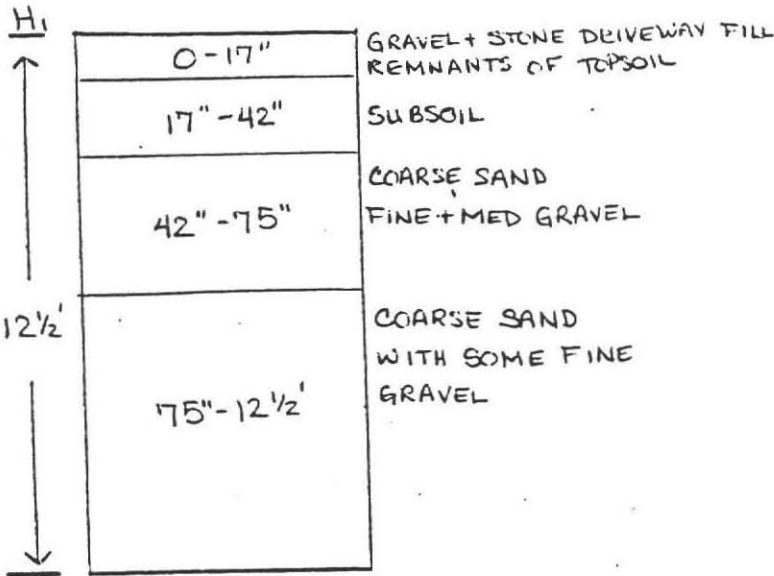 H1
0-17"
GRAVEL + STONE DRIVEWAY FILL
REMNANTS OF TOPSOIL
17"-42"
SUBSOIL
42"-75"
COARSE SAND
FINE + MED GRAVEL
12½'
75"-12½'
COARSE SAND
WITH SOME FINE
GRAVEL